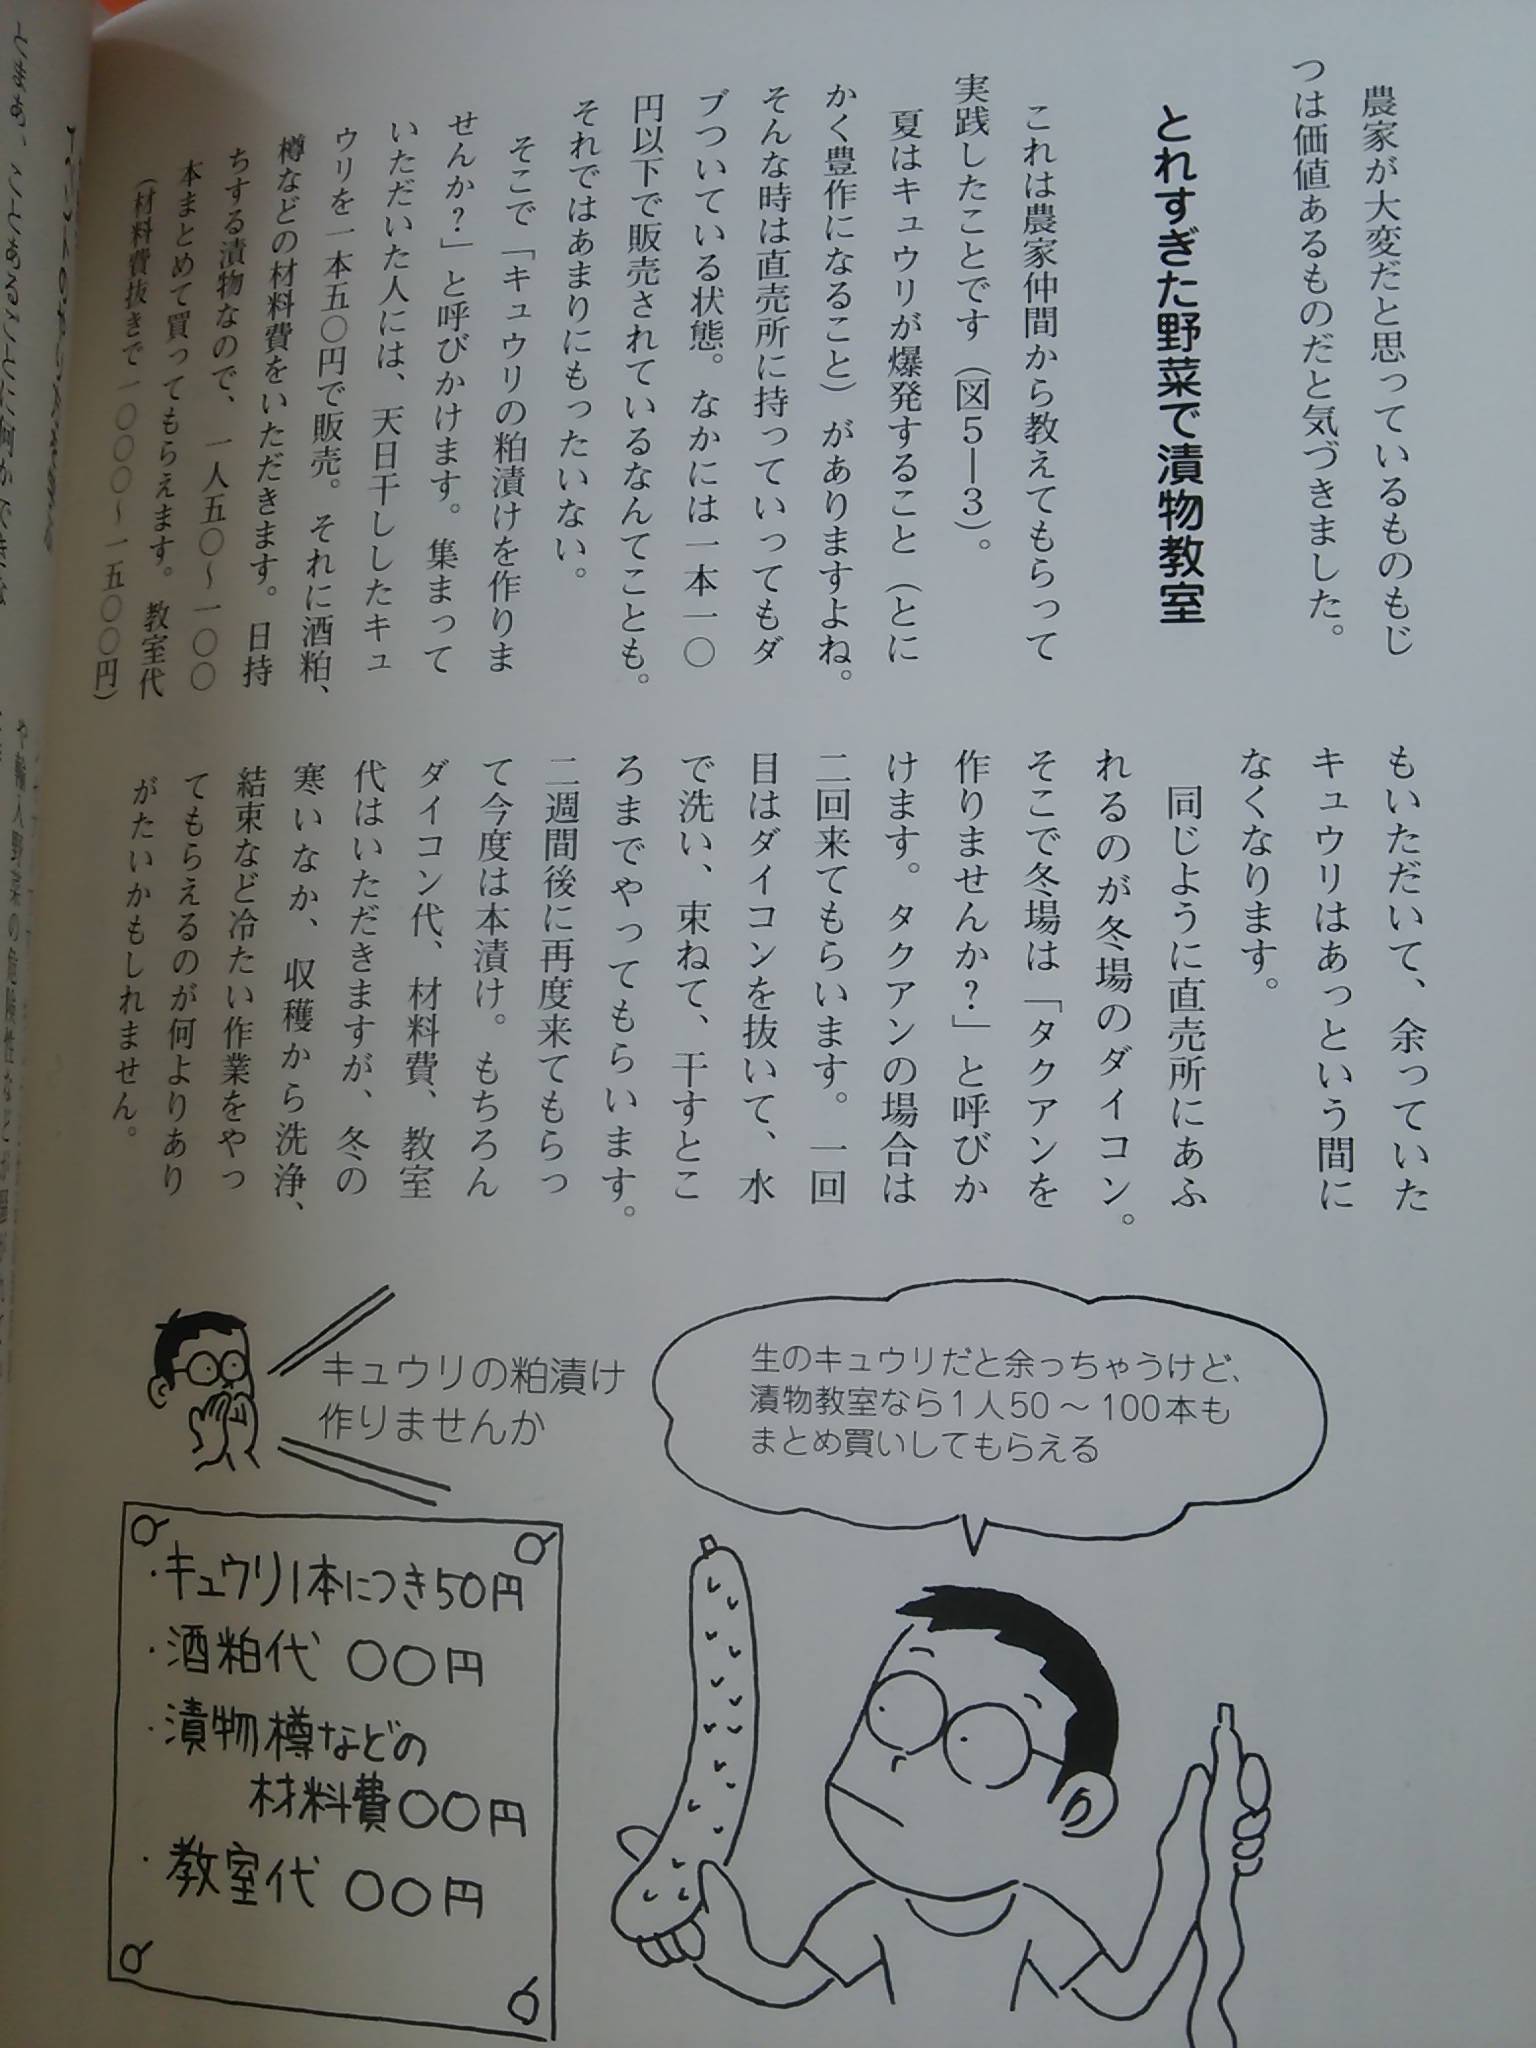 農家が大変だと思っているものもじ
つは価値あるものだと気づきました。
とれすぎた野菜で漬物教室
これは農家仲間から教えてもらって
実践したことです（図5―3）。
夏はキュウリが爆発すること（とに
かく豊作になること）がありますよね。
そんな時は直売所に持っていってもダ
ブついている状態。なかには一本一〇
円以下で販売されているなんてことも。
それではあまりにもったいない。
そこで「キュウリの粕漬けを作りま
せんか？」と呼びかけます。集まって
いただいた人には、天日干ししたキュ
ウリを一本五〇円で販売。それに酒粕、
樽などの材料費をいただきます。日持
ちする漬物なので、一人五〇〜一〇〇
本まとめて買ってもらえます。教室代
（材料費抜きで一〇〇〇〜一五〇〇円）
もいただいて、余っていた
キュウリはあっという間に
なくなります。
同じように直売所にあふ
れるのが冬場のダイコン。
そこで冬場は「タクアンを
作りませんか？」と呼びか
けます。タクアンの場合は
二回来てもらいます。一回
目はダイコンを抜いて、水
で洗い、束ねて、干すとこ
ろまでやってもらいます。
二週間後に再度来てもらっ
て今度は本漬け。もちろん
ダイコン代、材料費、教室
代はいただきますが、冬の
寒いなか、収穫から洗浄、
結束など冷たい作業をやっ
てもらえるのが何よりあり
がたいかもしれません。
生のキュウリだと余っちゃうけど、
漬物教室なら1人50〜100本も
まとめ買いしてもらえる
キュウリの粕漬け
作りませんか
・キュウリ1本につき50円
・酒粕代 〇〇円
・漬物樽などの
材料費〇〇円
・教室代 〇〇円
とまあ、ことあることに何か